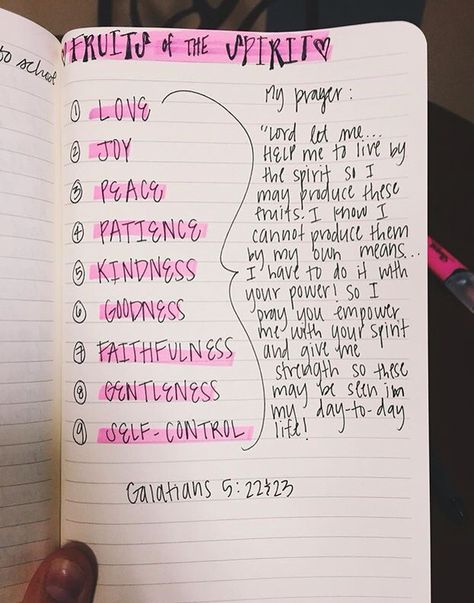 to school
♡FRUITS of the SPIRIT♡
① LOVE
② JOY
③ PEACE
④ PATIENCE
⑤ KINDNESS
⑥ GOODNESS
⑦ FAITHFULNESS
⑧ GENTLENESS
⑨ SELF-CONTROL
My prayer:
"Lord let me...
HELP me to live by
the spirit so I
may produce these
fruits. I know I
cannot produce them
by my own means...
I have to do it with
your power! so I
pray you empower
me with your spirit
and give me
strength so these
may be seen in
my day-to-day
life!
Galatians 5:22&23